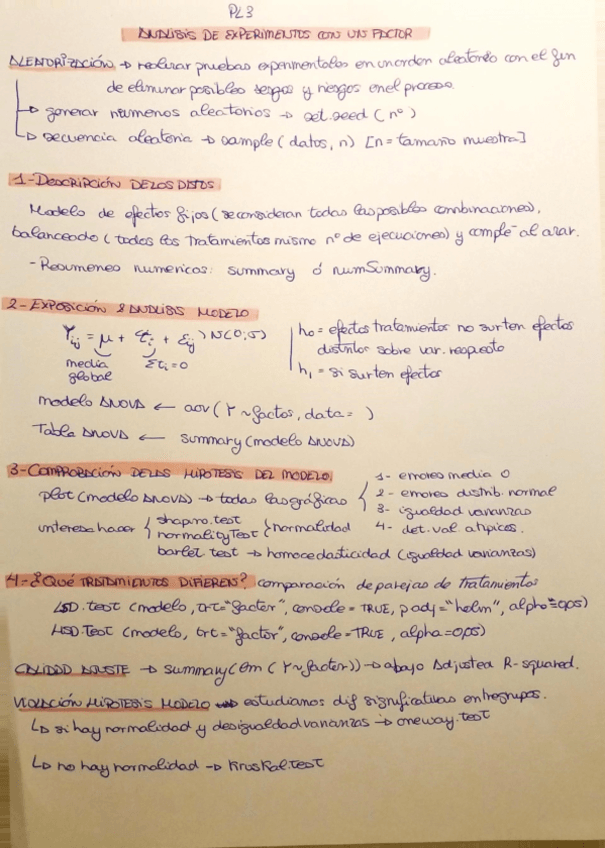 PL3
ANALISIS DE EXPERIMENTOS CON UN FACTOR
ALEATORIZACIÓN → realizar pruebas experimentales en un orden aleatorio con el fin
de eliminar posibles sesgos y riesgos en el proceso.
↳ generar números aleatorios → set.seed (nº)
↳ secuencia aleatoria → sample (datos, n) [n = tamaño muestra]
1- DESCRIPCIÓN DE LOS DATOS
Modelo de efectos fijos (se consideran todas las posibles combinaciones),
balanceado (todos los tratamientos mismo nº de ejecuciones) y comple⁻ al azar.
- Resumenes numericos: summary ó numSummary.
2- EXPOSICIÓN & ANÁLISIS MODELO
Yij = μ + τi + εij → N(0;σ)
media global
Στi = 0
h0 = efectos tratamientos no surten efectos
distintos sobre var. respuesta
h1 = si surten efectos
modelo ANOVA ← aov (Y ~ factos, data = )
Tabla ANOVA ← summary (modelo ANOVA)
3- COMPROBACIÓN DE LAS HIPOTESIS DEL MODELO
plot (modelo ANOVA) → todas las gráficas
1- errores media 0
2- errores distrib. normal
3- igualdad varianzas
4- det. val. atipicos.
interesa hacer { shapiro.test
normalityTest } normalidad
barlet test → homocedasticidad (igualdad varianzas)
4- ¿QUÉ TRATAMIENTOS DIFIEREN? comparación de parejas de tratamientos
LSD.test (modelo, trt = "factor", console = TRUE, p.adj = "holm", alpha = 0,05)
HSD.Test (modelo, trt = "factor", console = TRUE, alpha = 0,05)
CALIDAD AJUSTE → summary (lm (Y ~ factor)) → abajo Adjusted R-squared.
VIOLACIÓN HIPOTESIS MODELO → estudiamos dif significativas entre grupos.
↳ si hay normalidad y desigualdad varianzas → oneway.test
↳ no hay normalidad → kruskal.test